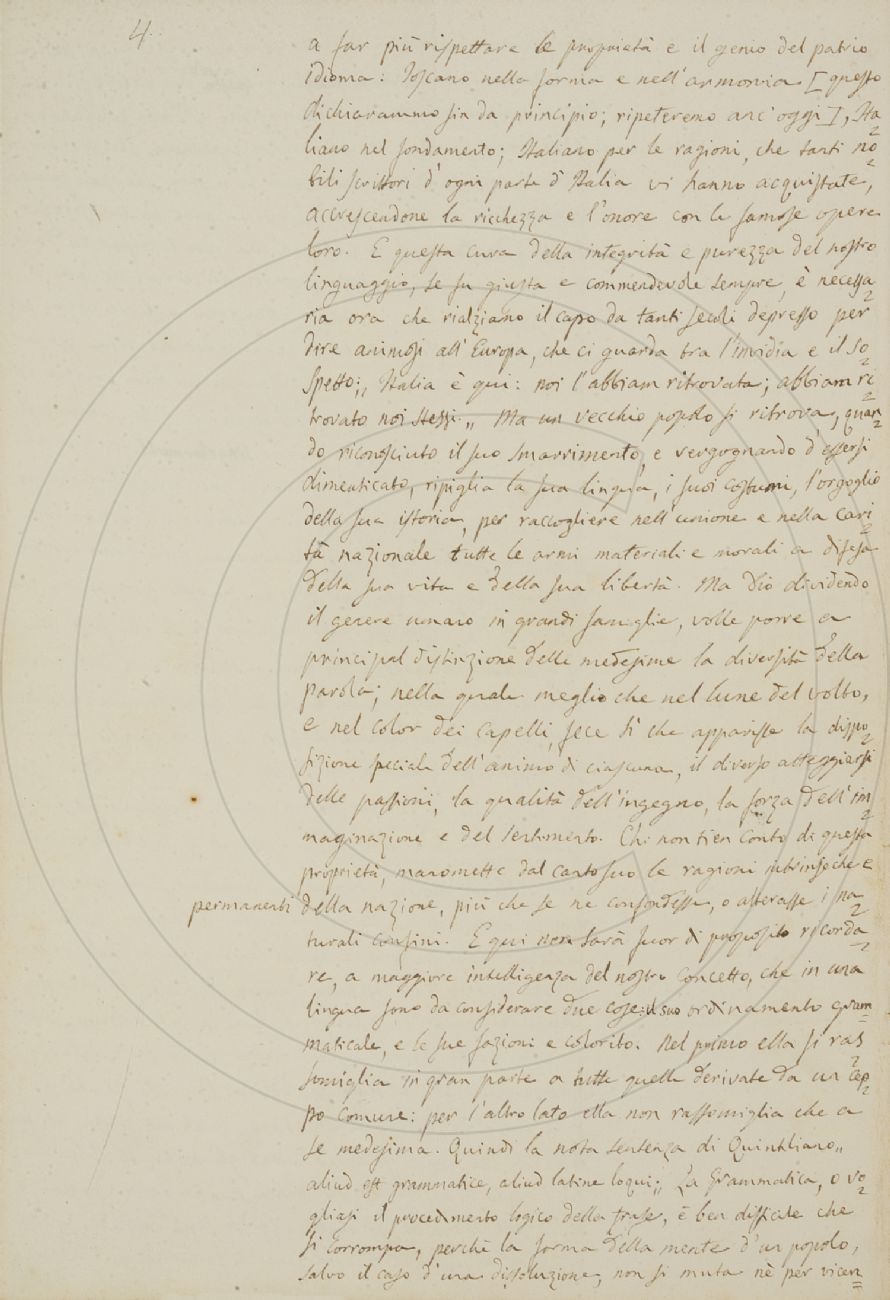 4.
a far più rispettare le proprietà e il genio del patrio
idioma: Toscano nella forma e nell'armonia [questo
dichiarammo sin da principio; ripeteremo anc'oggi], Ita=
liano nel fondamento; Italiano per le ragioni, che tanti no=
bili scrittori d'ogni parte d'Italia vi hanno acquistate,
accrescendone la ricchezza e l'onore con le famose opere
loro. E questa cura della integrità e purezza del nostro
linguaggio, se fu giusta e commendevole sempre, è necessa=
ria ora che rialziamo il capo da tanti secoli depresso per
dire animosi all'Europa, che ci guarda tra l'invidia e il so=
spetto: „ Italia è qui: noi l'abbiam ritrovata; abbiam ri=
trovato noi stessi. „ Ma un vecchio popolo si ritrova, quan=
do riconosciuto il suo smarrimento, e vergognando d'essersi
dimenticato, ripiglia la sua lingua, i suoi costumi, l'orgoglio
della sua istoria, per raccogliere nell'unione e nella cari=
tà nazionale tutte le armi materiali e morali a difesa
della sua vita e della sua libertà. Ma Dio dividendo
il genere umano in grandi famiglie, volle porre a
principal distinzione delle medesime la diversità della
parola; nella quale meglio che nel lume del volto,
e nel color dei capelli, fece sì che apparisse la dispo=
sizione speciale dell'animo di ciascuna, il diverso atteggiarsi
delle passioni, la qualità dell'ingegno, la forza dell'im=
maginazione e del sentimento. Chi non tien conto di questa
proprietà, manomette dal canto suo le ragioni intrinseche e
permanenti della nazione, più che se ne confondesse, o alterasse i na=
turali confini. E qui non sarà fuor di proposito ricorda=
re, a maggiore intelligenza del nostro concetto, che in una
lingua sono da considerare due cose: il suo ordinamento gram=
maticale, e le sue fazioni e colorito. Nel primo ella si ras=
somiglia in gran parte a tutte quelle derivate da un cep=
po comune: per l'altro lato ella non rassomiglia che a
se medesima. Quindi la nota sentenza di Quintiliano „
aliud est grammatice, aliud latine loqui „ La Grammatica, o vo=
gliasi il procedimento logico della frase, è ben difficile che
si corrompa, perchè la forma della mente d'un popolo,
salvo il caso d'una dissoluzione, non si muta nè per vicen=